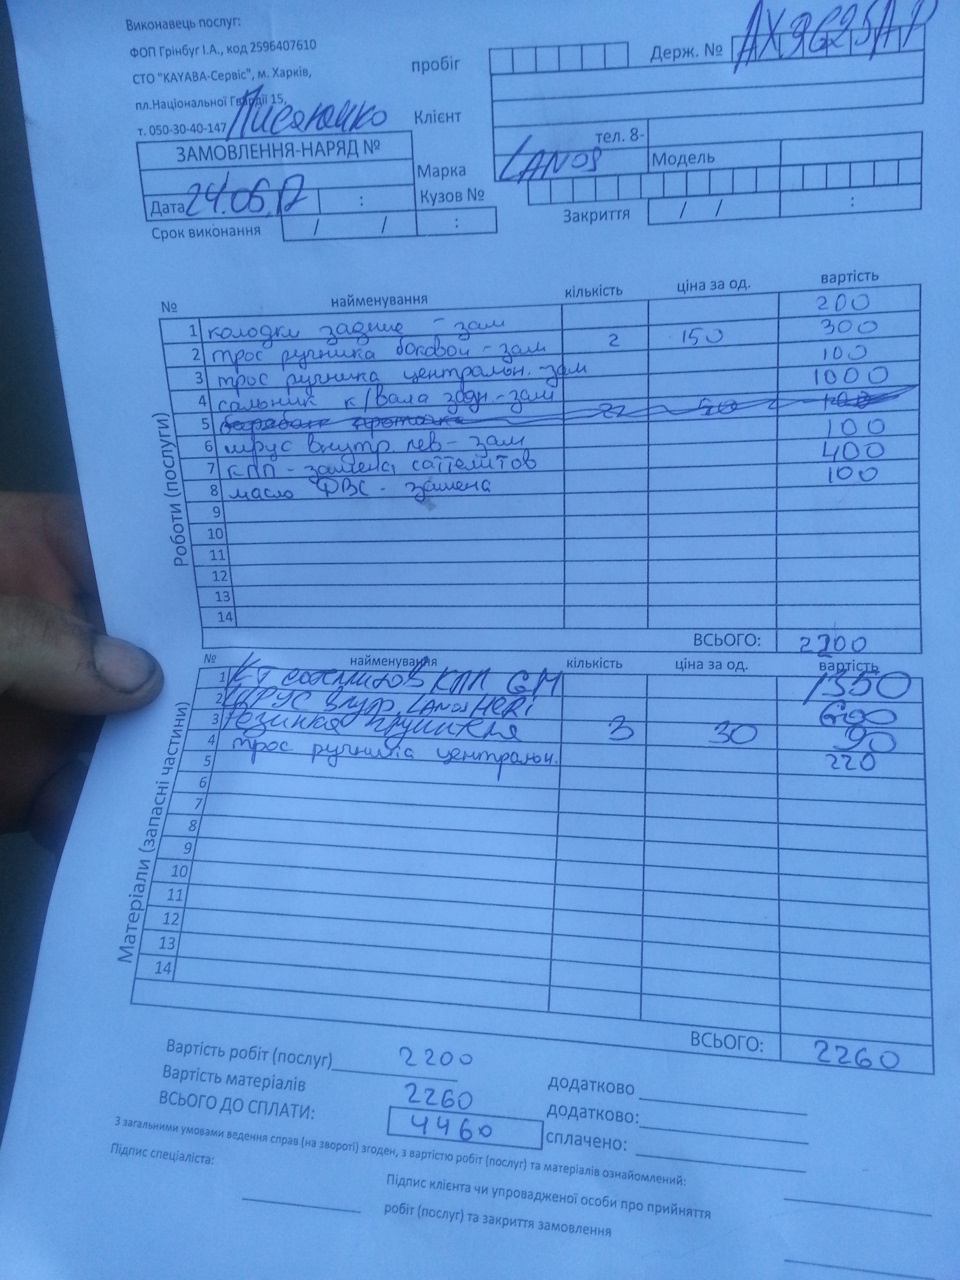 Виконавець послуг:
ФОП Грінбуг І.А., код 2596407610
СТО "КАYАВА-Сервіс", м. Харків,
пл.Національної Гвардії 15,
т. 050-30-40-147
пробіг
Держ. №
Клієнт
тел. 8-
ЗАМОВЛЕННЯ-НАРЯД №
Марка LANOS Модель
Дата 24.06.17 :
Кузов №
Срок виконання / / :
Закриття / / :
№ найменування кількість ціна за од. вартість
Роботи (послуги)
1 колодки задние - зам 200
2 трос ручника боковой - зам 2 150 300
3 трос ручника центральн. - зам 100
4 сальник к/вала задн. - зам 1000
5 барабан проточка
6 шрус внутр. лев - зам 100
7 КПП - замена сателитов 400
8 масло ДВС - замена 100
9
10
11
12
13
14
ВСЬОГО: 2200
№ найменування кількість ціна за од. вартість
Матеріали (запасні частини)
1 К-т сателитов КПП GM 1350
2 ШРУС внутр. LANOS HERI 600
3 Резинка глушителя 3 30 90
4 трос ручника центральн. 220
5
6
7
8
9
10
11
12
13
14
ВСЬОГО: 2260
Вартість робіт (послуг) 2200 додатково
Вартість матеріалів 2260 додатково:
ВСЬОГО ДО СПЛАТИ: 4460 сплачено:
З загальними умовами ведення справ (на звороті) згоден, з вартістю робіт (послуг) та матеріалів ознайомлений:
Підпис спеціаліста:
Підпис клієнта чи упровадженої особи про прийняття
робіт (послуг) та закриття замовлення